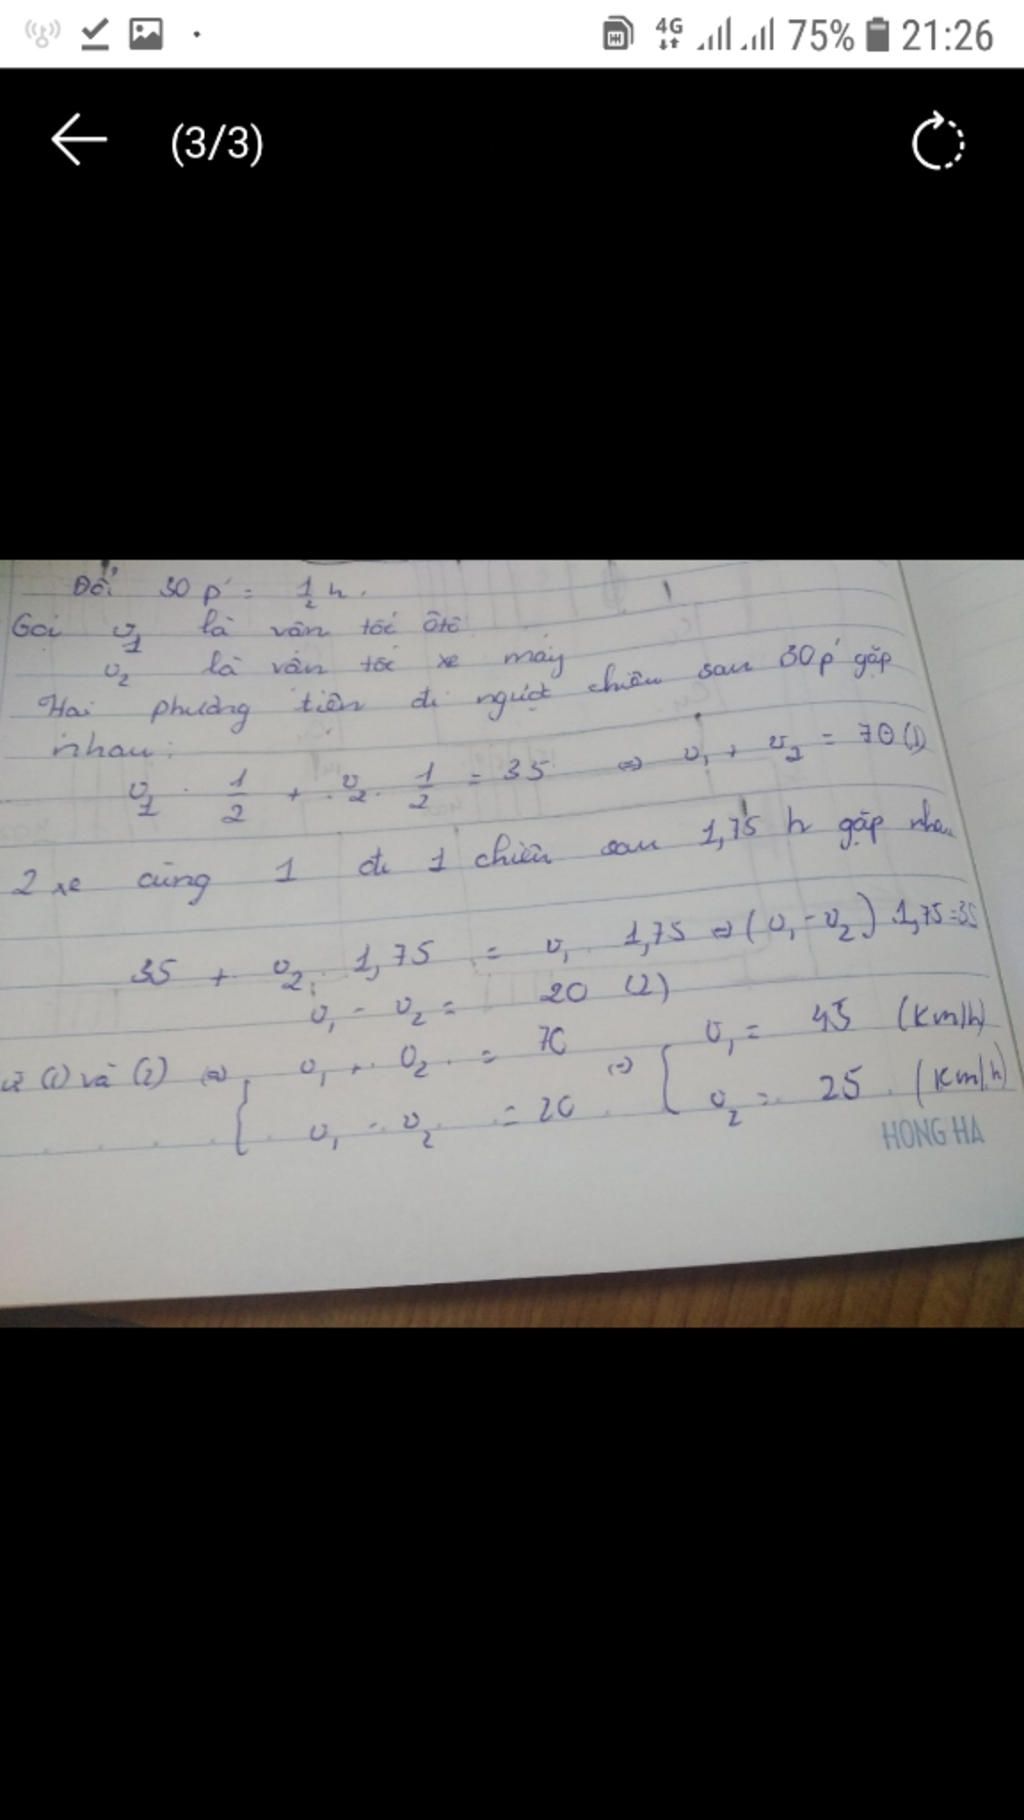 4G 75% 21:26
(3/3)
Đổi 30 p' = 1/2 h.
Gọi v1 là vân tốc ôtô
v2 là vân tốc xe máy
Hai phương tiện đi ngược chiều sau 30p' gặp
nhau:
v1 . 1/2 + v2 . 1/2 = 35 <=> v1 + v2 = 70 (1)
2 xe cùng 1 đi 1 chiều sau 1,75 h gặp nhau
35 + v2 . 1,75 = v1 1,75 => (v1 - v2) .1,75=35
v1 - v2 = 20 (2)
(1) và (2) => { v1 + v2 = 70 <=> [ v1 = 45 (Km/h)
v1 - v2 = 20 v2 = 25 (Km/h)
HONG HA